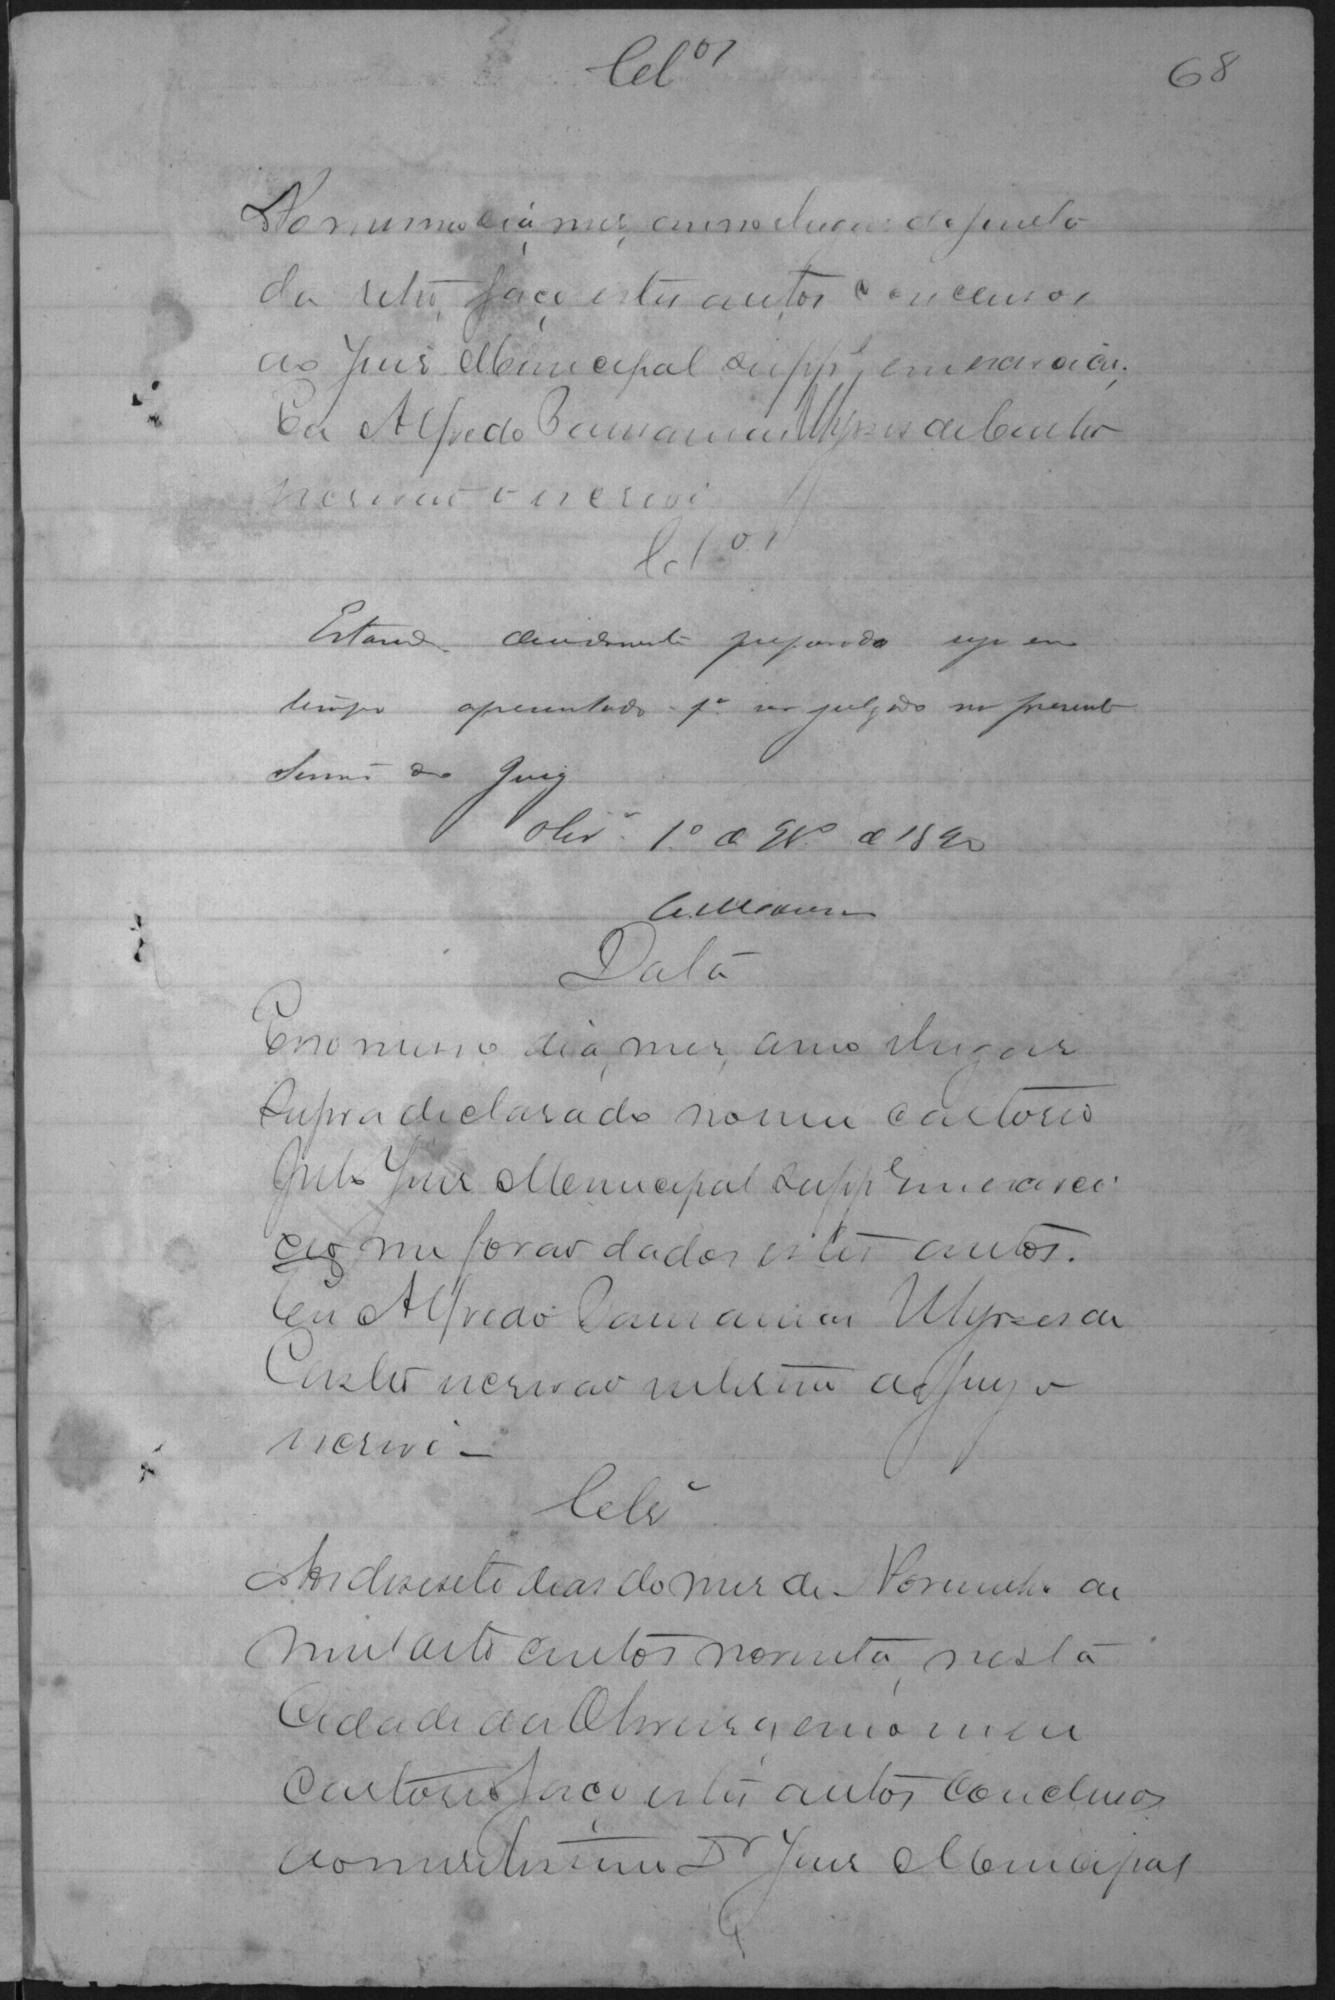 Cl.os
68
No mesmo dia, mes, anno e lugar da junta
da retro, faço estes autos conclusos
ao Juiz Municipal supp.e em exercicio.
Eu Alfredo Ulysses de Castro
escrivão o escrevi
Cl.os
Estando devidamente preparado seja em
tempo apresentado p.a ser julgado na presente
Sessão do Jury
Oliv.a 1.º de 9br.º de 1890
Data
E no mesmo dia, mes, anno e lugar
supra declarado no meu cartorio
pelo Juiz Municipal supp.e em exerci
cio me forão dados estes autos.
Eu Alfredo Ulysses de
Castro escrivão interino do jury o
escrevi –
Cls.
Aos deseseti dias do mes de Novembro de
mil oito centos noventa, nesta
Cidade da Oliveira, em o meu
cartorio faço estes autos conclusos
ao meritissimo Dr Juiz Municipal